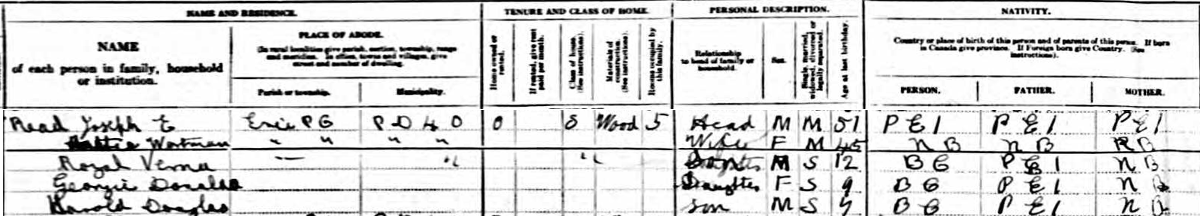 NAME AND RESIDENCE. TENURE AND CLASS OF HOME. PERSONAL DESCRIPTION. NATIVITY.
NAME
of each person in family, household
or institution.
PLACE OF ABODE.
(In rural localities give parish, section, township, range
and meridian. In cities, towns and villages, give
street and number of dwelling.)
Parish or township. Municipality.
Home owned or rented.
If rented, give rent paid per month.
Class of house (See instructions).
Materials of construction. (See instructions).
Rooms occupied by this family.
Relationship
to head of family or
household.
Sex.
Single, married, widowed, divorced or legally separated.
Age at last birthday.
Country or place of birth of this person and of parents of this person. If born
in Canada give province. If Foreign born give Country. (See
instructions).
PERSON. FATHER. MOTHER.
Read Joseph E Erie P G P D 40 O S Wood 5 Head M M 51 P E I P E I P E I
Wortman " " " " Wife F M 45 N B N B N B
Royal Verna " " M S 12 B C P E I N B
Georgie Donalda Daughter F S 9 B C P E I N B
Harold Douglas Son M S B C P E I N B